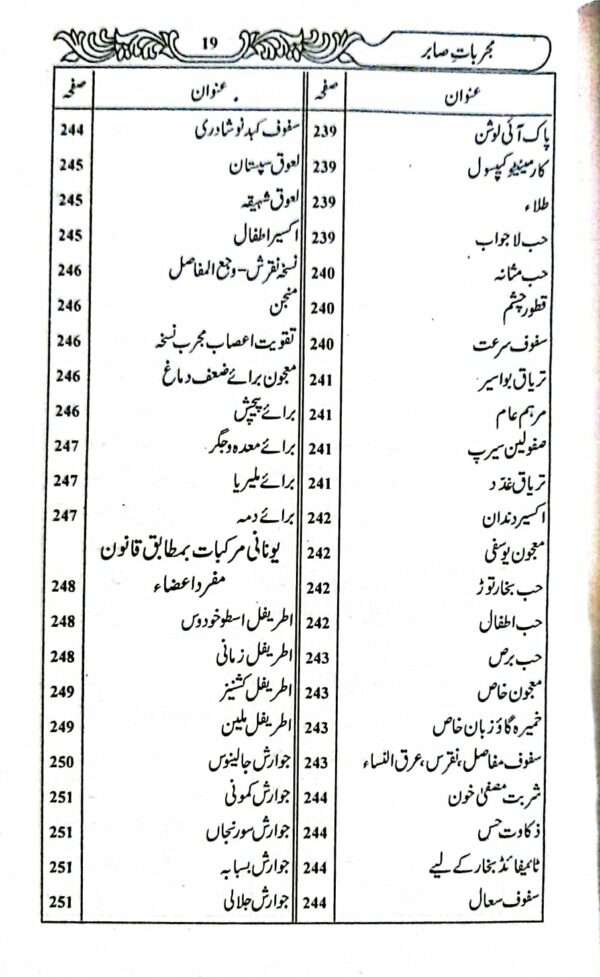 مجربات صابر
19
عنوان صفحہ
پاک آئی لوشن 239
کارمینیٹو کیپسول 239
طلاء 239
حب لاجواب 239
حب مثانہ 240
قطور چشم 240
سفوف سرعت 240
تریاق بواسیر 241
مرہم عام 241
صفولین سیرپ 241
تریاق غدد 241
اکسیر دندان 242
معجون یوسفی 242
حب بخار توڑ 242
حب اطفال 242
حب برص 243
معجون خاص 243
خمیرہ گاؤ زبان خاص 243
سفوف مفاصل، نقرس، عرق النساء 243
شربت مصفیٰ خون 244
ذکاوت حس 244
ٹائیفائڈ بخار کے لیے 244
سفوف سعال 244
عنوان صفحہ
سفوف کبد نوشادری 244
لعوق سپستان 245
لعوق شہیقہ 245
اکسیر اطفال 245
نسخہ نقرش - وجع المفاصل 246
منجن 246
تقویت اعصاب مجرب نسخہ 246
معجون برائے ضعف دماغ 246
برائے پیچش 246
برائے معدہ و جگر 247
برائے ملیریا 247
برائے دمہ 247
یونانی مرکبات بمطابق قانون
مفرد اعضاء 248
اطریفل اسطوخودوس 248
اطریفل زمانی 248
اطریفل کشنیز 249
اطریفل ملین 249
جوارش جالینوس 250
جوارش کمونی 251
جوارش سورنجاں 251
جوارش بسبابہ 251
جوارش جلالی 251